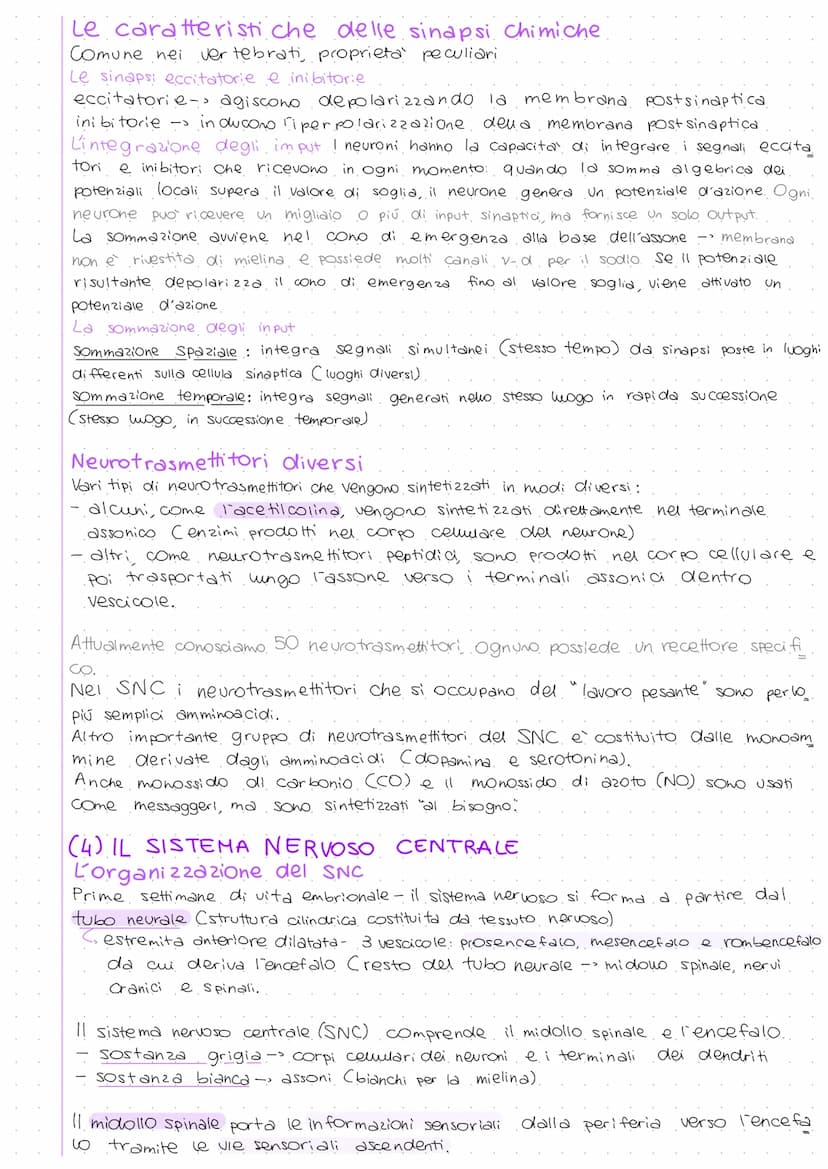 Le caratteristiche delle sinapsi chimiche
Comune nei vertebrati, proprietà peculiari
Le sinapsi eccitatorie e inibitorie
eccitatorie -> agiscono depolarizzando la membrana postsinaptica
inibitorie -> inducono l'iperpolarizzazione della membrana postsinaptica
L'integrazione degli imput I neuroni hanno la capacità di integrare i segnali eccita
tori e inibitori che ricevono in ogni momento: quando la somma algebrica dei
potenziali locali supera il valore di soglia, il neurone genera un potenziale d'azione. Ogni
neurone può ricevere un migliaio o più di input sinaptici, ma fornisce un solo output.
La sommazione avviene nel cono di emergenza alla base dell'assone -> membrana
non è rivestita di mielina e possiede molti canali v-d per il sodio se il potenziale
risultante depolarizza il cono di emergenza fino al valore soglia, viene attivato un
potenziale d'azione
La sommazione degli input
sommazione spaziale: integra segnali simultanei (stesso tempo) da sinapsi poste in luoghi
differenti sulla cellula sinaptica (luoghi diversi)
sommazione temporale: integra segnali generati nello stesso luogo in rapida successione
(stesso luogo, in successione temporale)
Neurotrasmettitori diversi
Vari tipi di neurotrasmettitori che vengono sintetizzati in modi diversi:
- alcuni, come l'acetilcolina, vengono sintetizzati direttamente nel terminale
assonico (enzimi prodotti nel corpo cellulare del neurone)
- altri, come neurotrasmettitori peptidici, sono prodotti nel corpo cellulare e
poi trasportati lungo l'assone verso i terminali assonici dentro
vescicole.
Attualmente conosciamo 50 neurotrasmettitori. Ognuno possiede un recettore specifi
co.
Nel SNC i neurotrasmettitori che si occupano del "lavoro pesante" sono perlo
più semplici amminoacidi.
Altro importante gruppo di neurotrasmettitori del SNC è costituito dalle monoam
mine derivate dagli amminoacidi (dopamina e serotonina).
Anche monossido di carbonio (CO) e il monossido di azoto (NO) sono usati
come messaggeri, ma sono sintetizzati "al bisogno".
(4) IL SISTEMA NERVOSO CENTRALE
L'organizzazione del SNC
Prime settimane di vita embrionale - il sistema nervoso si forma a partire dal
tubo neurale (struttura cilindrica costituita da tessuto nervoso)
estremita anteriore dilatata - 3 vescicole: prosencefalo, mesencefalo e rombencefalo
da cui deriva l'encefalo (resto del tubo neurale -> midollo spinale, nervi
cranici e spinali.
Il sistema nervoso centrale (SNC) comprende il midollo spinale e l'encefalo.
- sostanza grigia -> corpi cellulari dei neuroni e i terminali dei dendriti
- sostanza bianca -> assoni (bianchi per la mielina)
Il midollo spinale porta le informazioni sensoriali dalla periferia verso l'encefa
lo tramite le vie sensoriali ascendenti.